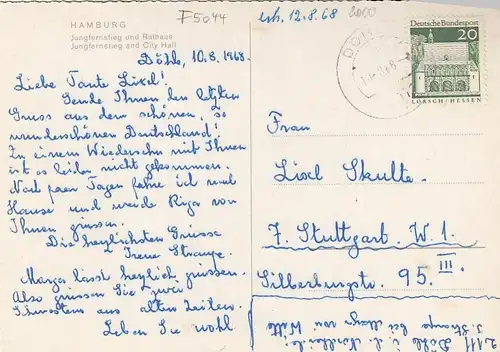 HAMBURG
Jungfernstieg und Rathaus
Jungfernstieg and City Hall
F5044
erh. 12.8.68
3000
Döhle, 10.8.1968.
Liebe Tante Lixel!
Sende Ihnen den letzten
Gruss aus dem schönen, so
wunderschönen Deutschland!
Zu einem Wiedersehn mit Ihnen
ist es leider nicht gekommen.
Nach paar Tagen fahre ich nach
Hause und werde Riga von
Ihnen grüssen.
Die herzlichsten Grüsse
Irene Strauge.
Marga lässt herzlich grüssen.
Also grüssen Sie zwei
Schwestern aus alten Zeiten.
Leben Sie wohl
Deutsche Bundespost
20
LORSCH/HESSEN
Frau
Lixl Skulte.
7. Stuttgart. W. 1.
Silberburgstr. 95 III.
2111 Döhle i. d. Nordheide
I. Strauge bei Marga von Witte